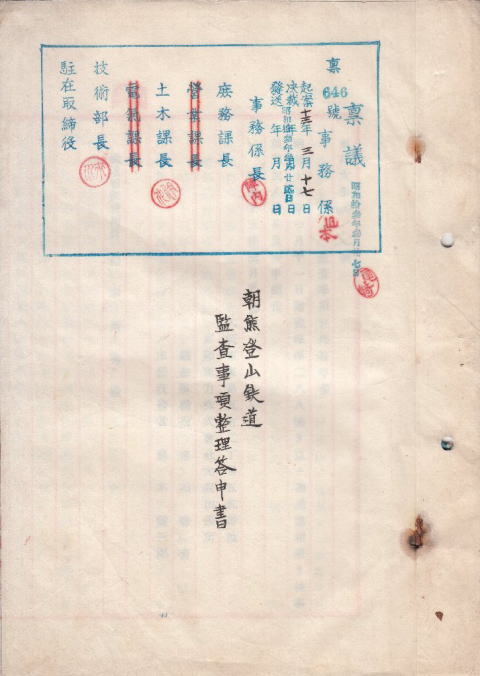 稟議
昭和拾叁年叁月十七日
稟646號
事務係
起案十三年三月十七日
決裁 年 月 日
發送 年 月 日
事務係長
庶務課長
營業課長
土木課長
電氣課長
技術部長
駐在取締役
朝熊登山鉄道
監査事項整理答申書